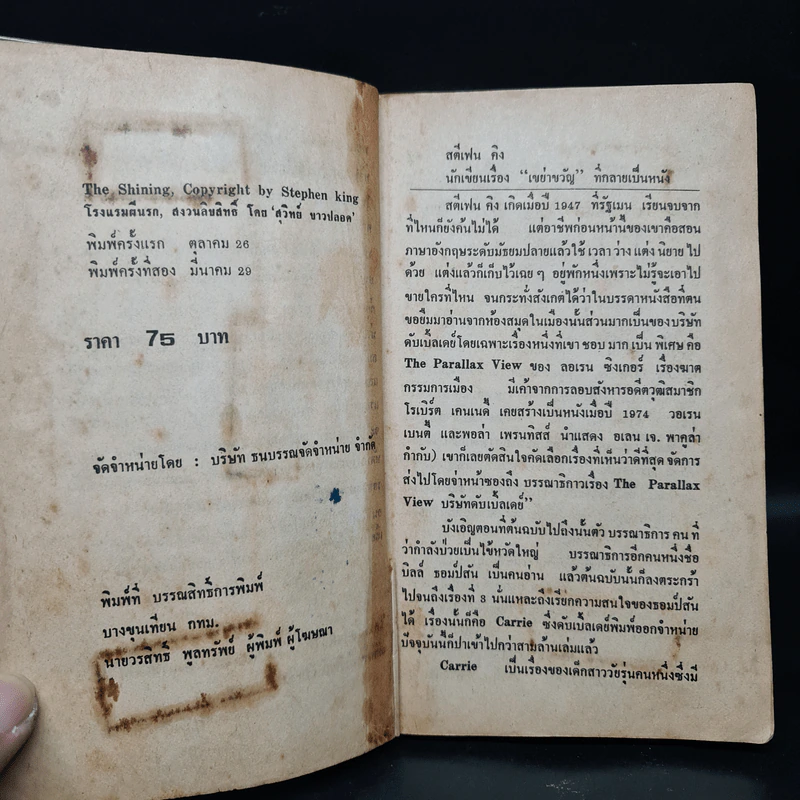 The Shining, Copyright by Stephen king
โรงแรมผีนรก, สงวนลิขสิทธิ์ โดย 'สุวิทย์ ขาวปลอด'
พิมพ์ครั้งแรก ตุลาคม 26
พิมพ์ครั้งที่สอง มีนาคม 29
ราคา 75 บาท
จัดจำหน่ายโดย : บริษัท ธนบรรณจัดจำหน่าย จำกัด
พิมพ์ที่ บรรณสิทธิ์การพิมพ์
บางขุนเทียน กทม.
นายวรสิทธิ์ พูลทรัพย์ ผู้พิมพ์ ผู้โฆษณา
สตีเฟน คิง
นักเขียนเรื่อง "เขย่าขวัญ" ที่กลายเป็นหนัง
สตีเฟน คิง เกิดเมื่อปี 1947 ที่รัฐเมน เรียนจบจาก
ที่ไหนก็ยังค้นไม่ได้ แต่อาชีพก่อนหน้านี้ของเขาคือสอน
ภาษาอังกฤษระดับมัธยมปลายแล้วใช้ เวลา ว่าง แต่ง นิยาย ไป
ด้วย แต่งแล้วก็เก็บไว้เฉย ๆ อยู่พักหนึ่งเพราะไม่รู้จะเอาไป
ขายใครที่ไหน จนกระทั่งสังเกตได้ว่าในบรรดาหนังสือที่ตน
ขอยืมมาอ่านจากห้องสมุดในเมืองนั้นส่วนมากเป็นของบริษัท
ดับเบิ้ลเดย์โดยเฉพาะเรื่องหนึ่งที่เขา ชอบ มาก เป็น พิเศษ คือ
The Parallax View ของ ลอเรน ซิงเกอร์ เรื่องฆาต
กรรมการเมือง มีเค้าจากการลอบสังหารอดีตวุฒิสมาชิก
โรเบิร์ต เคนเนดี้ เคยสร้างเป็นหนังเมื่อปี 1974 วอเรน
เบนตี้ และพอล่า เพรนทิสส์ นำแสดง อเลน เจ. พาคูล่า
กำกับ) เขาก็เลยตัดสินใจคัดเลือกเรื่องที่เห็นว่าดีที่สุด จัดการ
ส่งไปโดยจ่าหน้าซองถึง บรรณาธิกาวเรื่อง The Parallax
View บริษัทดับเบิ้ลเดย์"
บังเอิญตอนที่ต้นฉบับไปถึงนั้นตัว บรรณาธิการ คน ที่
ว่ากำลังป่วยเป็นไข้หวัดใหญ่ บรรณาธิการอีกคนหนึ่งชื่อ
บิลล์ ธอมป์สัน เป็นคนอ่าน แล้วต้นฉบับนั้นก็ลงตระกร้า
ไปจนถึงเรื่องที่ 3 นั่นแหละถึงเรียกความสนใจของธอมป์สัน
ได้ เรื่องนั้นก็คือ Carrie ซึ่งดับเบิ้ลเดย์พิมพ์ออกจำหน่าย
ปัจจุบันนี้ก็ปาเข้าไปกว่าสามล้านเล่มแล้ว
Carrie เป็นเรื่องของเด็กสาววัยรุ่นคนหนึ่งซึ่งมี